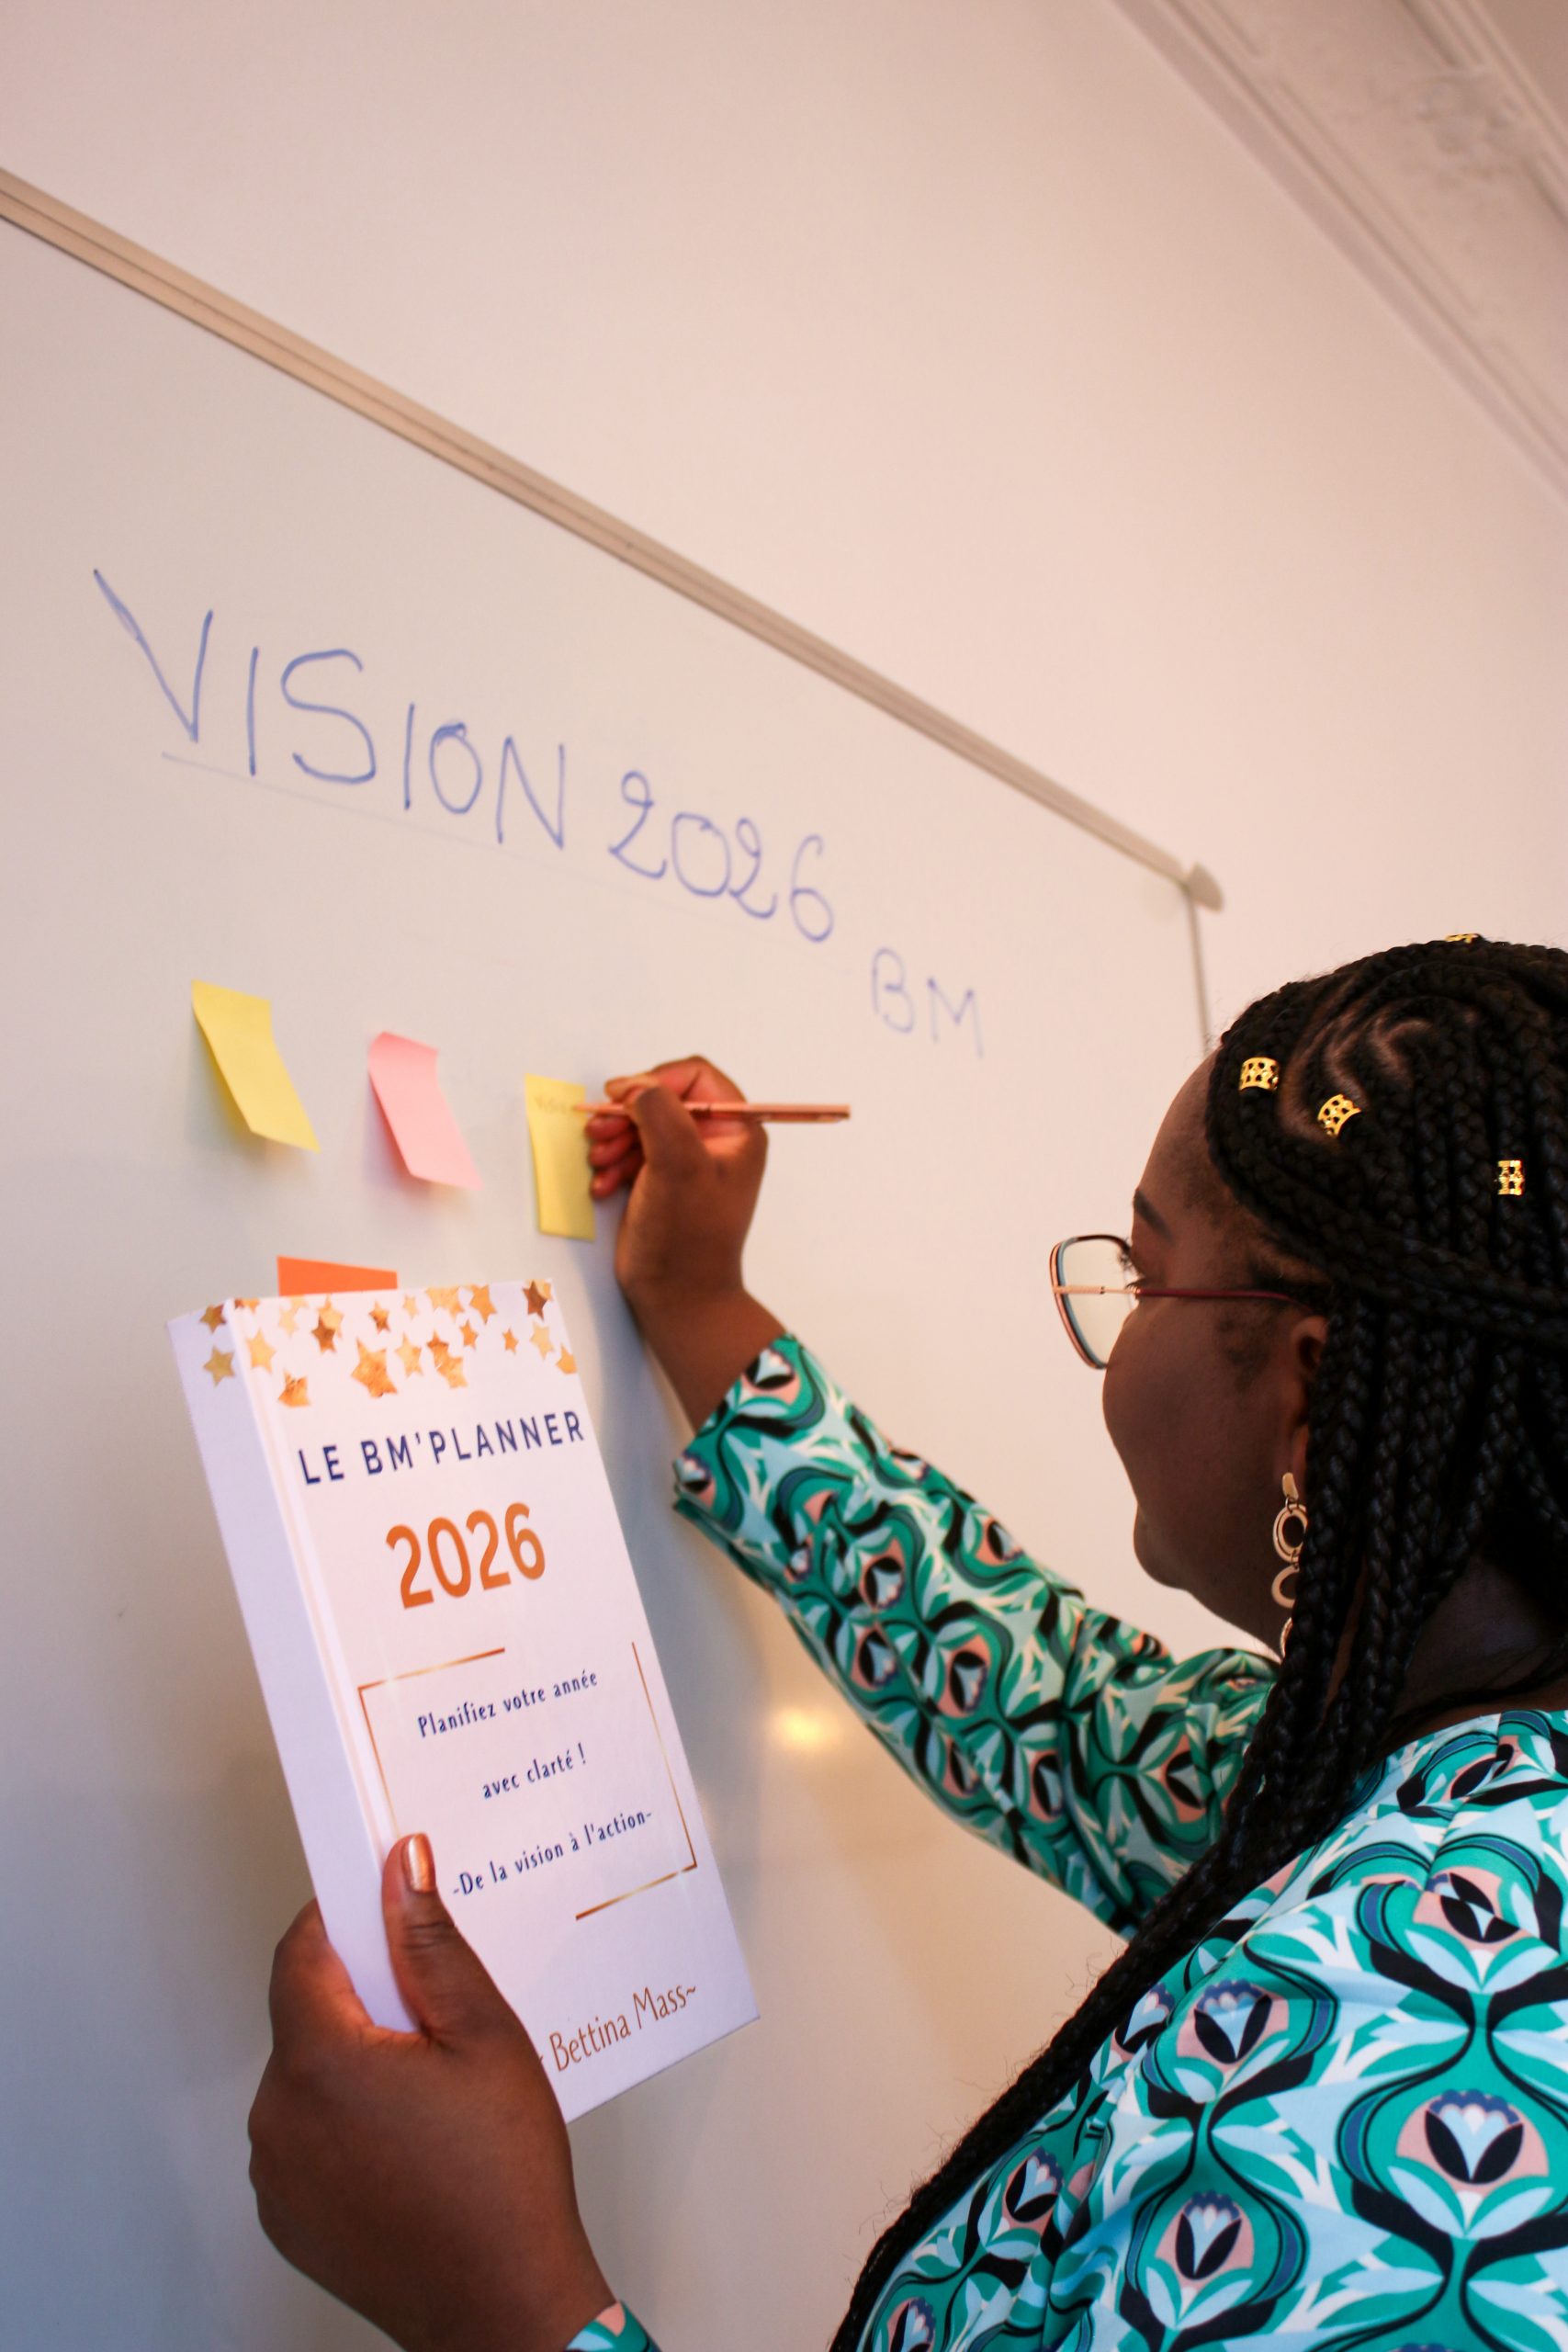 VISION 2026
BM
LE BM'PLANNER
2026
Planifiez votre année
avec clarté !
-De la vision à l'action-
~ Bettina Mass~